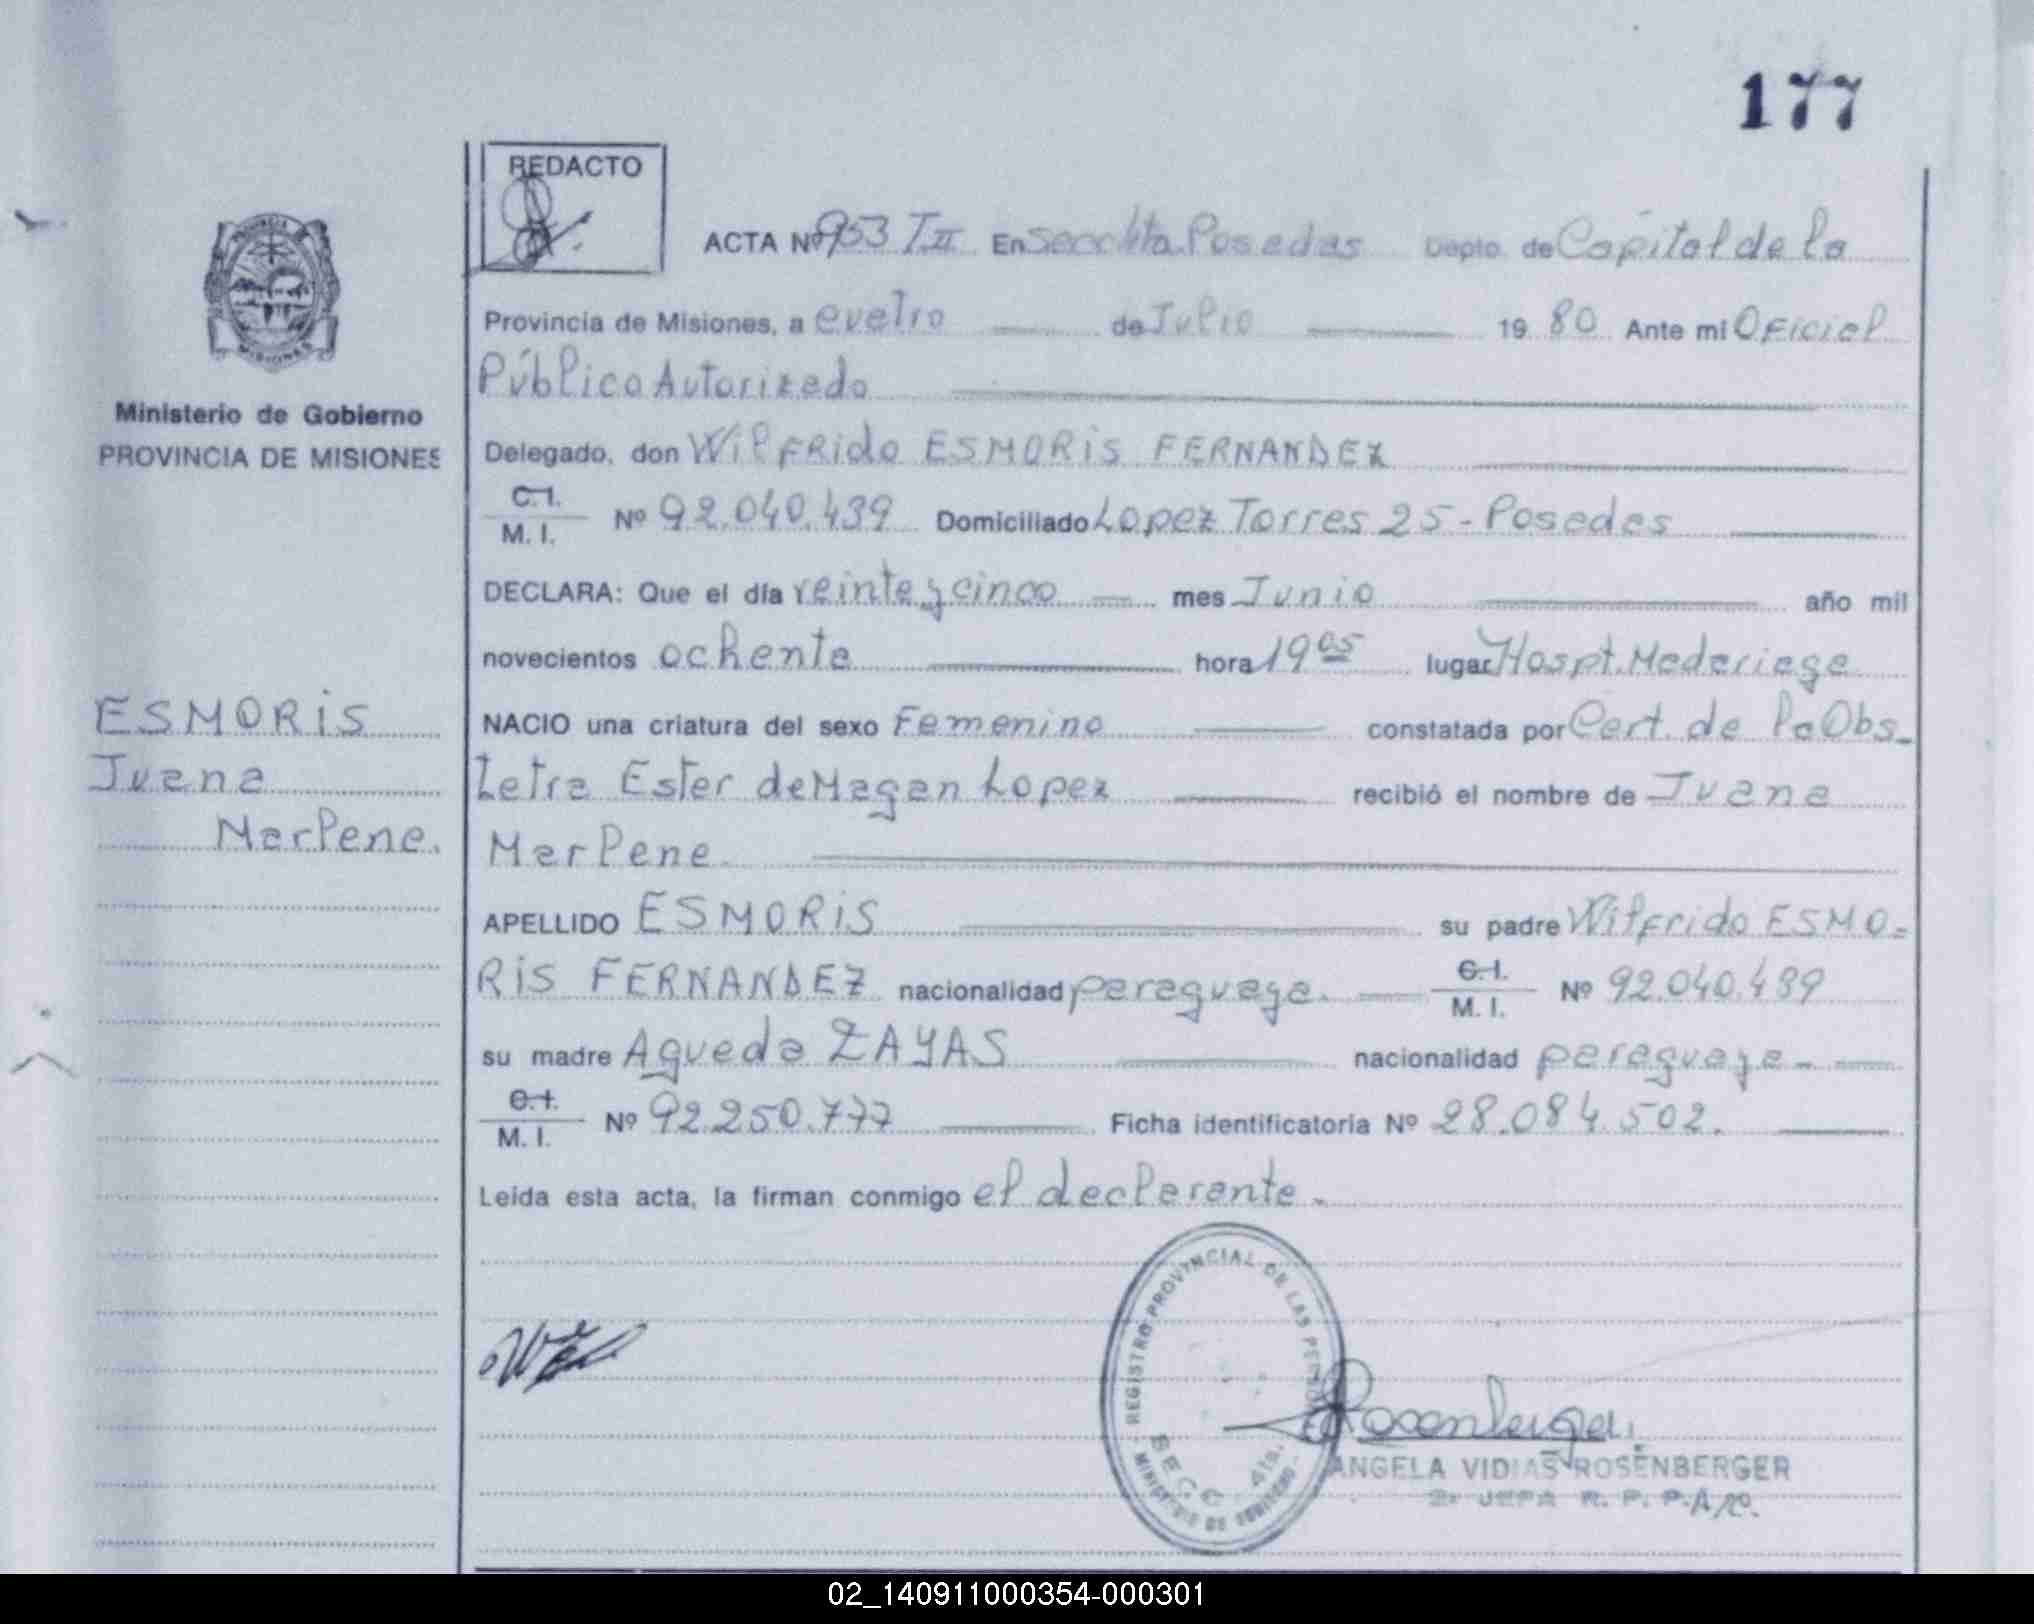 177
REDACTO
ACTA Nº 953 T.II En Secc 4ta. Posadas Depto. de Capital de la
Provincia de Misiones, a cuatro de Julio 19 80 Ante mi Oficial
Público Autorizado
Ministerio de Gobierno
PROVINCIA DE MISIONES
Delegado, don Wilfrido ESMORIS FERNANDEZ
C.I.
M. I. Nº 92.040.439 Domiciliado Lopez Torres 25 - Posadas
DECLARA: Que el día veinte y cinco mes Junio año mil
novecientos ochenta hora 19 05 lugar Hospt. Madariaga
ESMORIS
Juana
Marlene.
NACIO una criatura del sexo Femenino constatada por Cert. de la Obs_
tetra Ester de Magan Lopez recibió el nombre de Juana
Marlene.
APELLIDO ESMORIS su padre Wilfrido ESMO=
RIS FERNANDEZ nacionalidad paraguaya. C.I.
M. I. Nº 92.040.439
su madre Agueda ZAYAS nacionalidad paraguaya -
C.I.
M. I. Nº 92.250.777 Ficha identificatoria Nº 28.084.502.
Leida esta acta, la firman conmigo el declarante.
REGISTRO PROVINCIAL DE LAS PERSONAS
SECC. 4ta.
MINISTERIO DE GOBIERNO
Rosenberger
ANGELA VIDIAS ROSENBERGER
2º JEFA R. P. P.
02_140911000354-000301